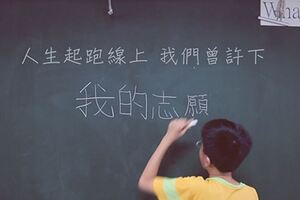 人生起跑線上 我們曾許下
我的志願
Wha